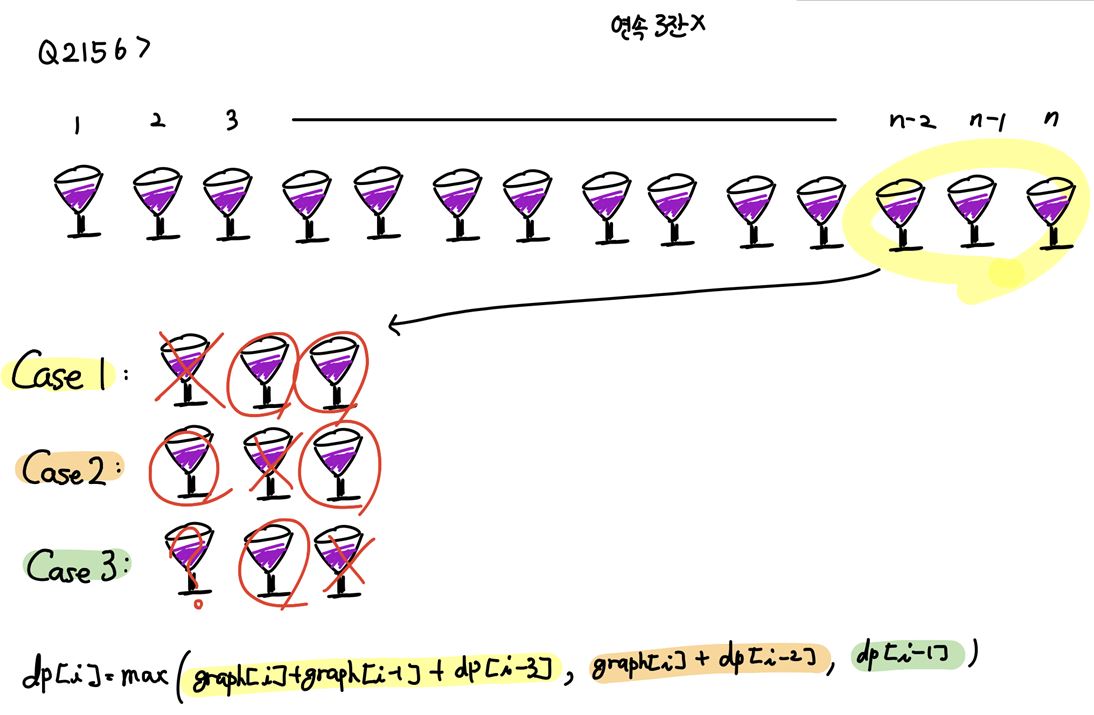 연속 3잔X
Q2156>
1 2 3 n-2 n-1 n
Case 1:
Case 2:
?
Case 3:
dp[i]=max(graph[i]+graph[i-1]+dp[i-3], graph[i]+dp[i-2], dp[i-1])